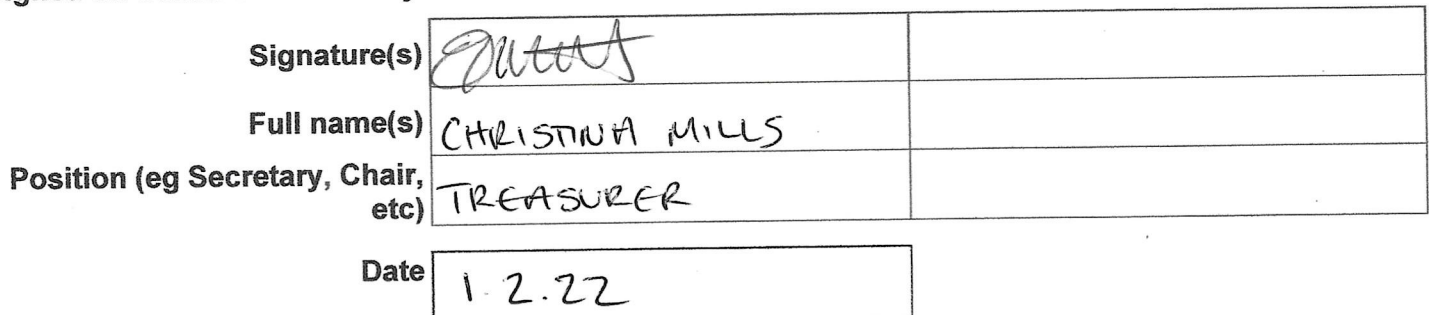 Signature(s)
Full name(s) CHRISTINA MILLS
Position (eg Secretary, Chair, etc) TREASURER
Date 1.2.22